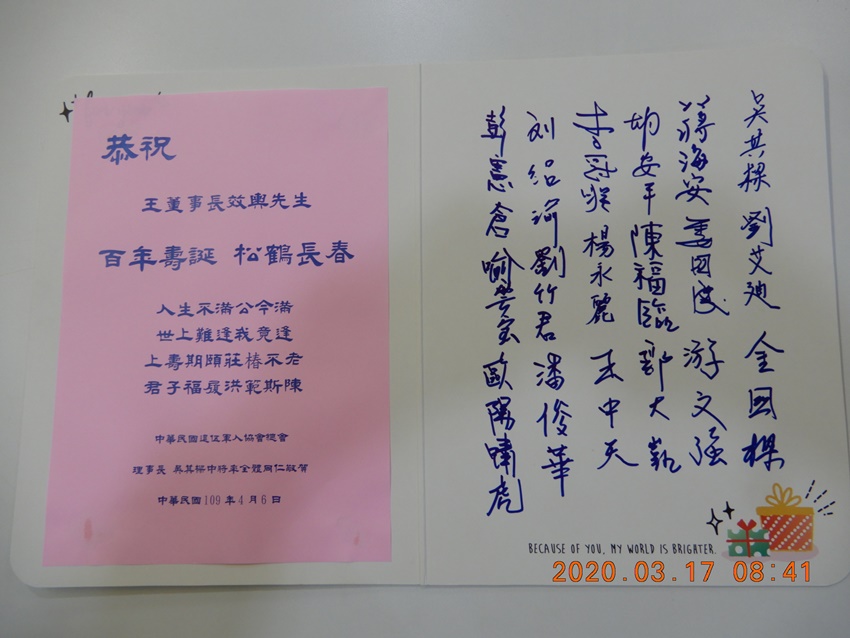 恭祝
王董事長效輿先生
百年壽誕 松鶴長春
人生不滿公今滿
世上難逢我竟逢
上壽期頤莊椿不老
君子福履洪範斯陳
中華民國退伍軍人協會總會
理事長 吳其樑中將率全體同仁敬賀
中華民國109年4月6日
吳其樑 劉艾迪 金國樑
蔣海安 游文強
胡安平 陳福臨 鄭大
楊永麗 王中天
刘绍 劉竹君 潘俊華
彭憲倉 喻 歐陽嘯虎
BECAUSE OF YOU, MY WORLD IS BRIGATER.
2020.03.17 08:41